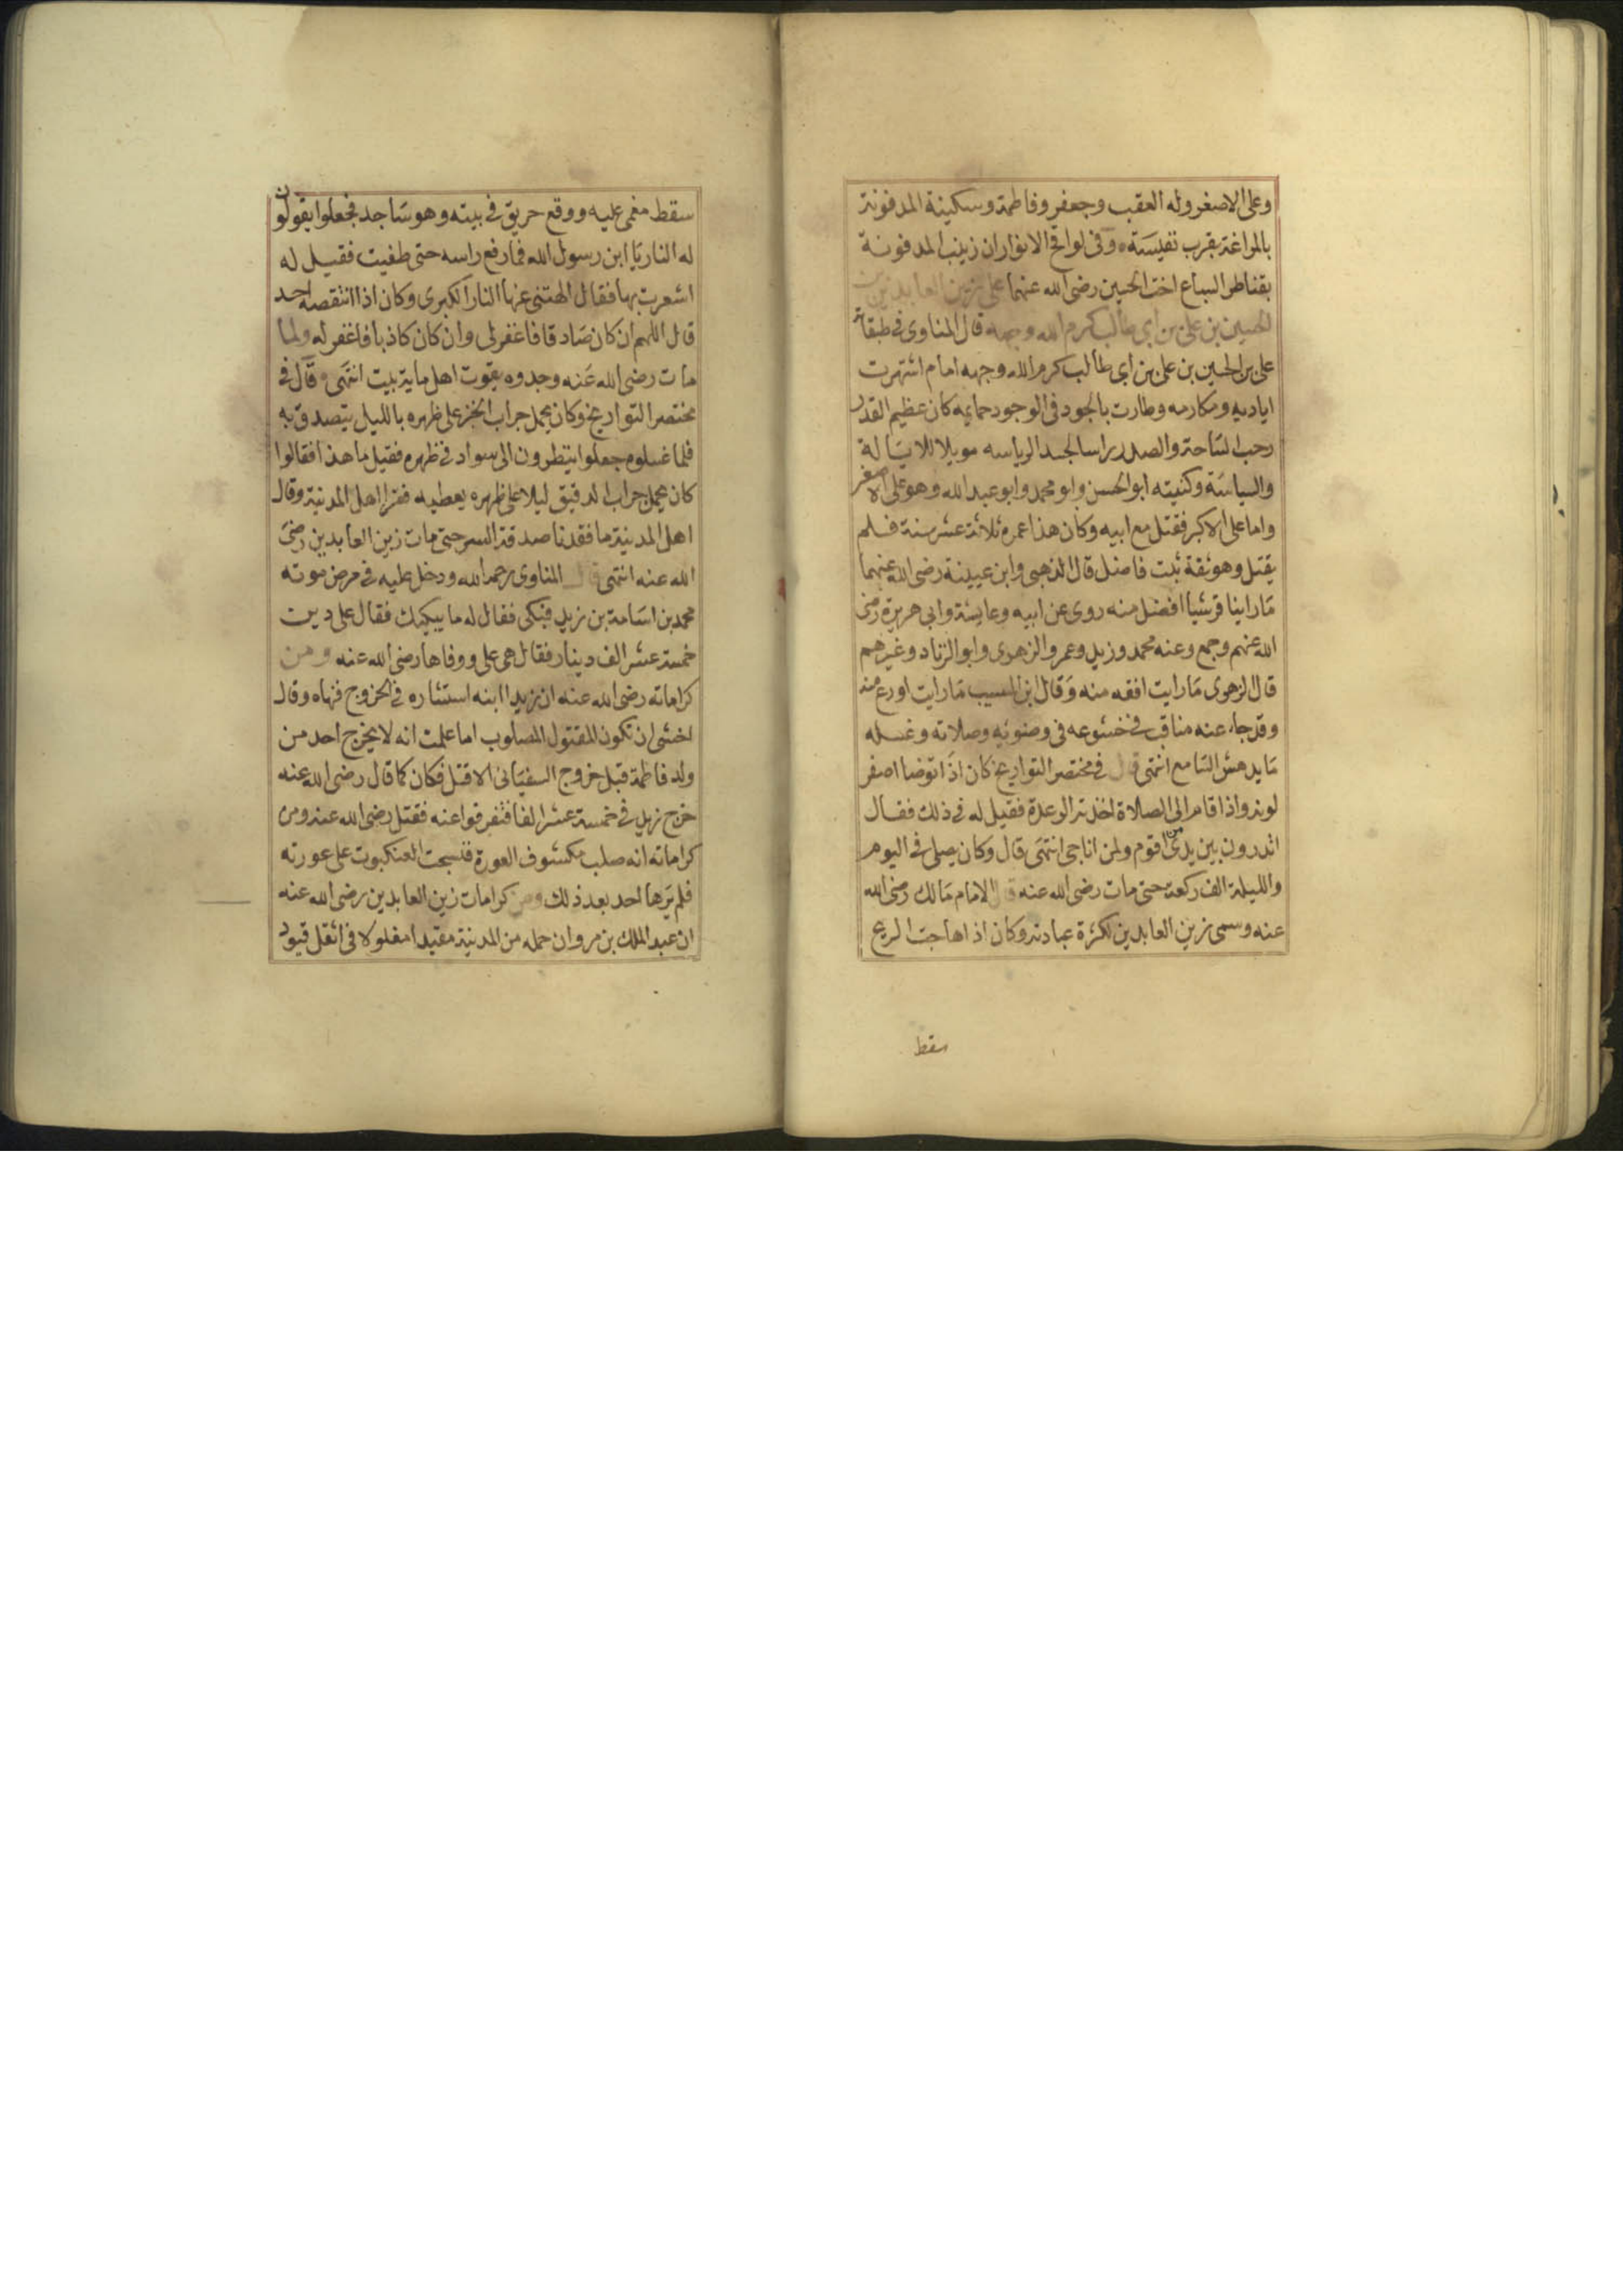 وعلى الاصغر وله العقب وجعفر وفاطمة وسكينة المدفونة
بالمراغة بقرب نفيسة وفى لواقح الانوار ان زينب المدفونة
بقناطر السباع اخت الحسين رضى الله عنهما على زين العابدين بن
الحسين بن على بن ابى طالب كرم الله وجهه قال المناوى فى طبقاته
على بن الحسين بن على بن ابى طالب كرم الله وجهه امام اشتهرت
اياديه ومكارمه وطارت بالجود فى الوجود حمايمه كان عظيم القدر
رحب الساحة والصدر راسا لجسد الرياسه مويلا للايالة
والسياسة وكنيته ابو الحسن وابو محمد وابو عبد الله وهو على الاصغر
واما على الاكبر فقتل مع ابيه وكان هذا عمره ثلاثة عشر سنة فلم
يقتل وهو ثقة ثبت فاضل قال الذهبى وابن عيينة رضى الله عنهما
ما راينا قرشيا افضل منه روى عن ابيه وعايشة وابى هريرة رضى
الله عنهم وجمع وعنه محمد وزيد وعمر والزهرى وابو الزناد وغيرهم
قال لزهرى ما رايت افقه منه وقال ابن المسيب ما رايت اورع منه
وقد جاء عنه مناقب فى خشوعه فى وضوئه وصلاته وغسله
ما يدهش السامع انتهى قال فى مختصر التواريخ كان اذا توضا اصفر
لونه واذا قام الى الصلاة اخذته الرعدة فقيل له فى ذلك فقال
اتدرون بين يدى من اقوم ولمن اناجى انتهى قال وكان يصلى فى اليوم
والليلة الف ركعة حتى مات رضى الله عنه قال الامام مالك رضى الله
عنه وسمى زين العابدين لكثرة عبادته وكان اذا هاجت الريح
سقط
سقط مغمى عليه ووقع حريق فى بيته وهو ساجد فجعلوا يقولون
له النار يا ابن رسول الله فما رفع راسه حتى طفيت فقيل له
اشعرت بها فقال الهتنى عنها النار الكبرى وكان اذا انتقصه احد
قال اللهم ان كان صادقا فاغفر لى وان كان كاذبا فاغفر له ولما
مات رضى الله عنه وجدوه يقوت اهل ماية بيت انتهى وقال فى
مختصر التواريخ وكان يحمل جراب الخبز على ظهره بالليل يتصدق به
فلما غسلوه جعلوا ينظرون الى سواد فى ظهره فقيل ما هذا فقالوا
كان يحمل جراب الدقيق ليلا على ظهره يعطيه فقرا اهل المدينة وقال
اهل المدينة ما فقدنا صدقة السر حتى مات زين العابدين رضى
الله عنه انتهى قال المناوى رحمه الله ودخل عليه فى مرض موته
محمد بن اسامة بن زيد فبكى فقال له ما يبكيك فقال على دين
خمسة عشر الف دينار فقال هى على ووفاها رضى الله عنه ومن
كراماته رضى الله عنه ان زيدا ابنه استشاره فى الخروج فنهاه وقال
اخشى ان تكون المقتول المصلوب اما علمت انه لا يخرج احد من
ولد فاطمة قبل خروج السفيانى الا قتل فكان كما قال رضى الله عنه
خرج زيد فى خمسة عشر الفا فتفرقوا عنه فقتل رضى الله عنه ومن
كراماته انه صلب مكشوف العورة فنسجت العنكبوت على عورته
فلم يرها احد بعد ذلك ومن كرامات زين العابدين رضى الله عنه
ان عبد الملك بن مروان حمله من المدينة مقيدا مغلولا فى اثقل قيود